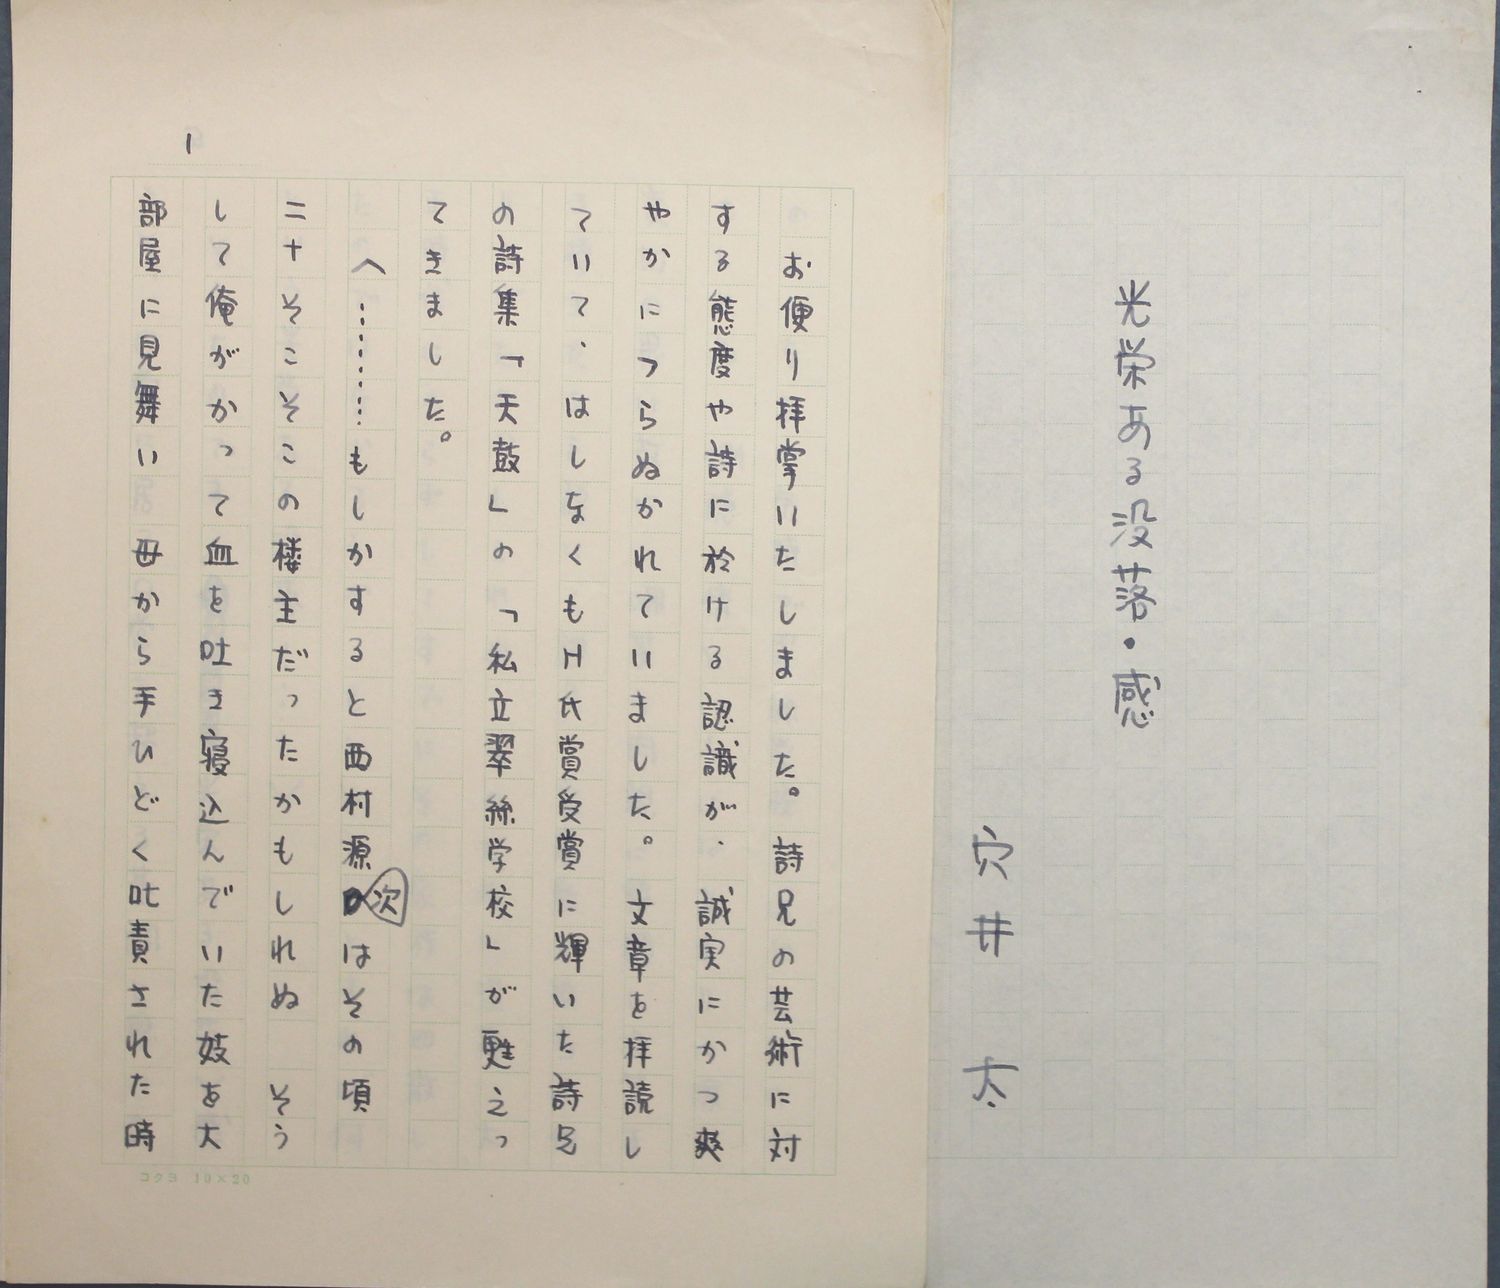 光栄ある没落・感
穴井 太
1
お便り拝掌いたしました。詩兄の芸術に対
する態度や詩に於ける認識が、誠実にかつ爽
やかにつらぬかれていました。文章を拝読し
ていて、はしなくもH氏賞受賞に輝いた詩兄
の詩集「天鼓」の「私立翠絲学校」が甦えっ
てきました。
へ………もしかすると西村源次はその頃
二十そこそこの楼主だったかもしれぬ そう
して俺がかって血を吐き寝込んでいた妓を大
部屋に見舞い 母から手ひどく叱責された時
コクヨ 10×20